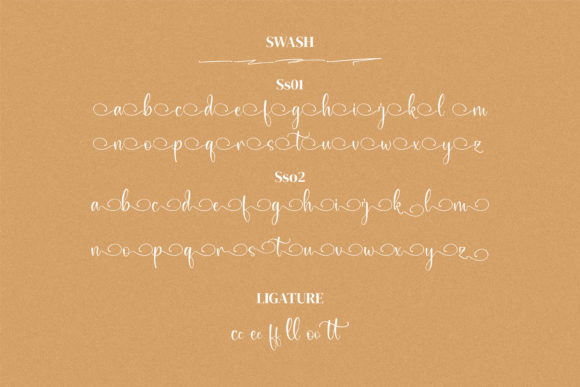 SWASH
Ss01
a b c d e f g h i j k l m
n o p q r s t u v w x y z
Sso2
a b c d e f g h i j k l m
n o p q r s t u v w x y z
LIGATURE
cc ee ff ll oo tt